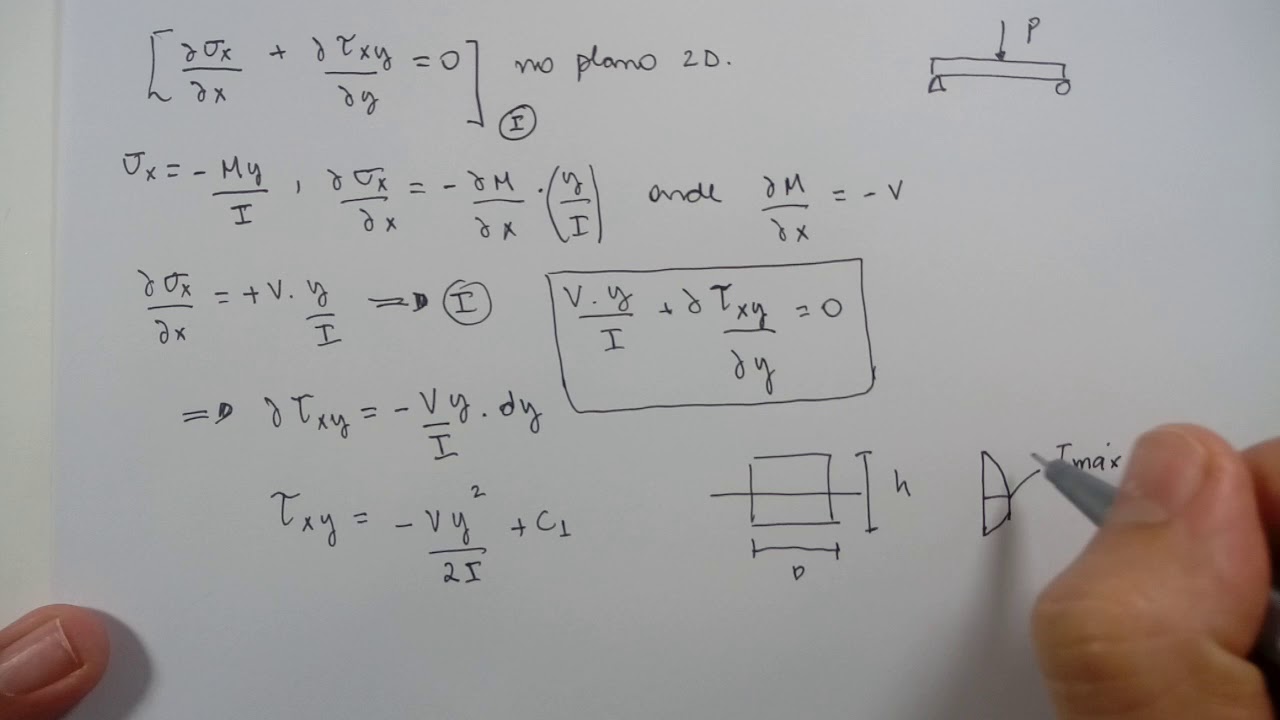 [∂σx/∂x + ∂τxy/∂y = 0] no plano 2D.
I
P
σx = - My/I , ∂σx/∂x = - ∂M/∂x · (y/I) onde ∂M/∂x = - V
∂σx/∂x = + V . y/I => I
V . y/I + ∂τxy/∂y = 0
=> ∂τxy = - Vy/I . dy
τxy = - Vy²/2I + C1
h
b
τmáx